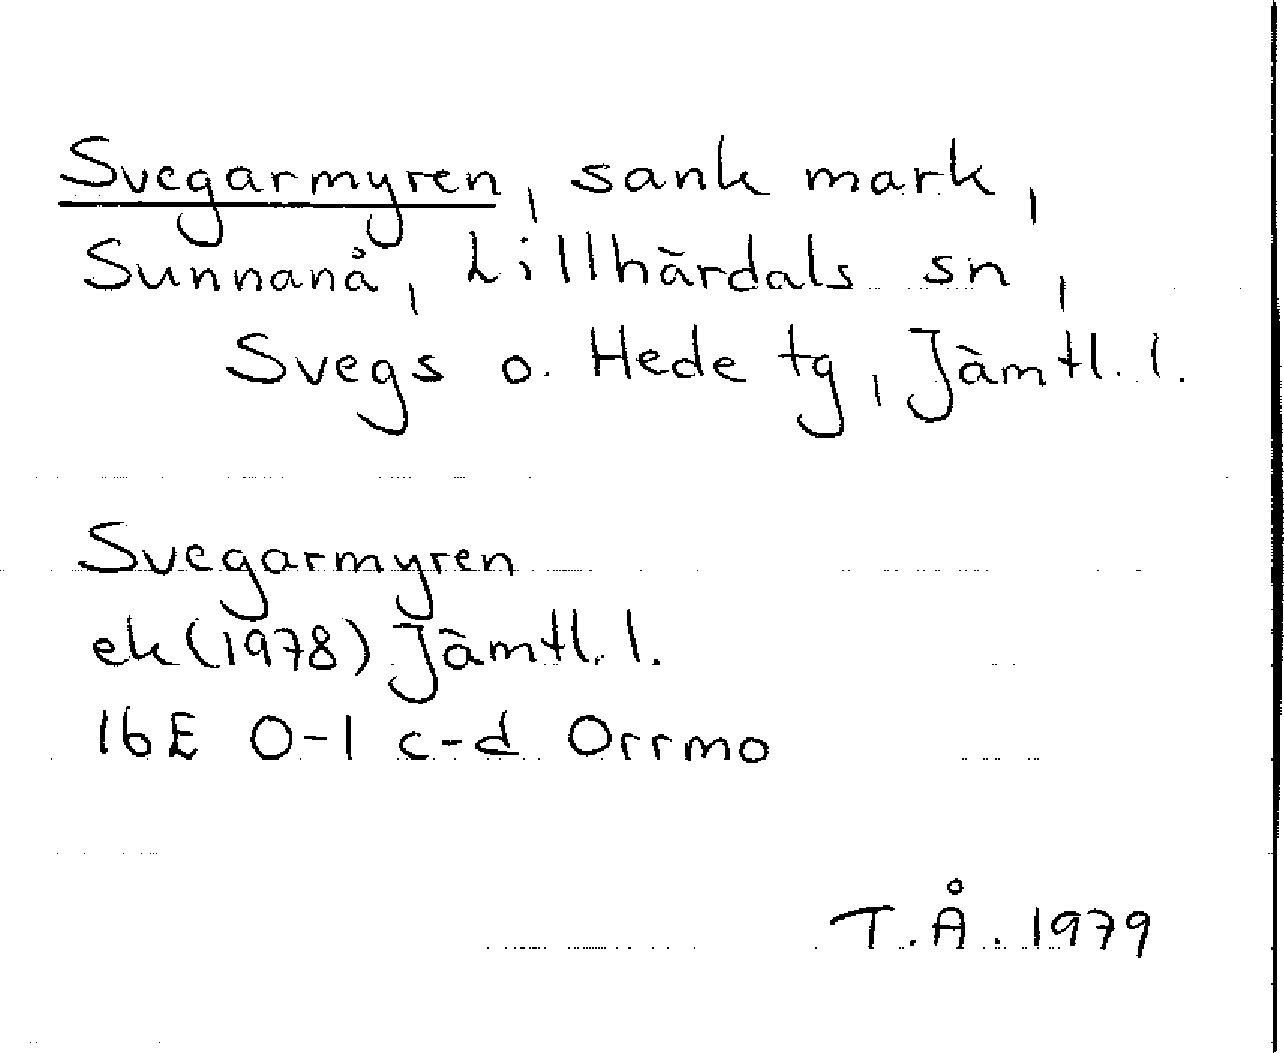 Svegarmyren, sank mark,
Sunnanå, Lillhärdals sn,
Svegs o. Hede tg, Jämtl. l.
Svegarmyren
ek (1978) Jämtl. l.
16E 0-1 c-d Orrmo
T.Å. 1979